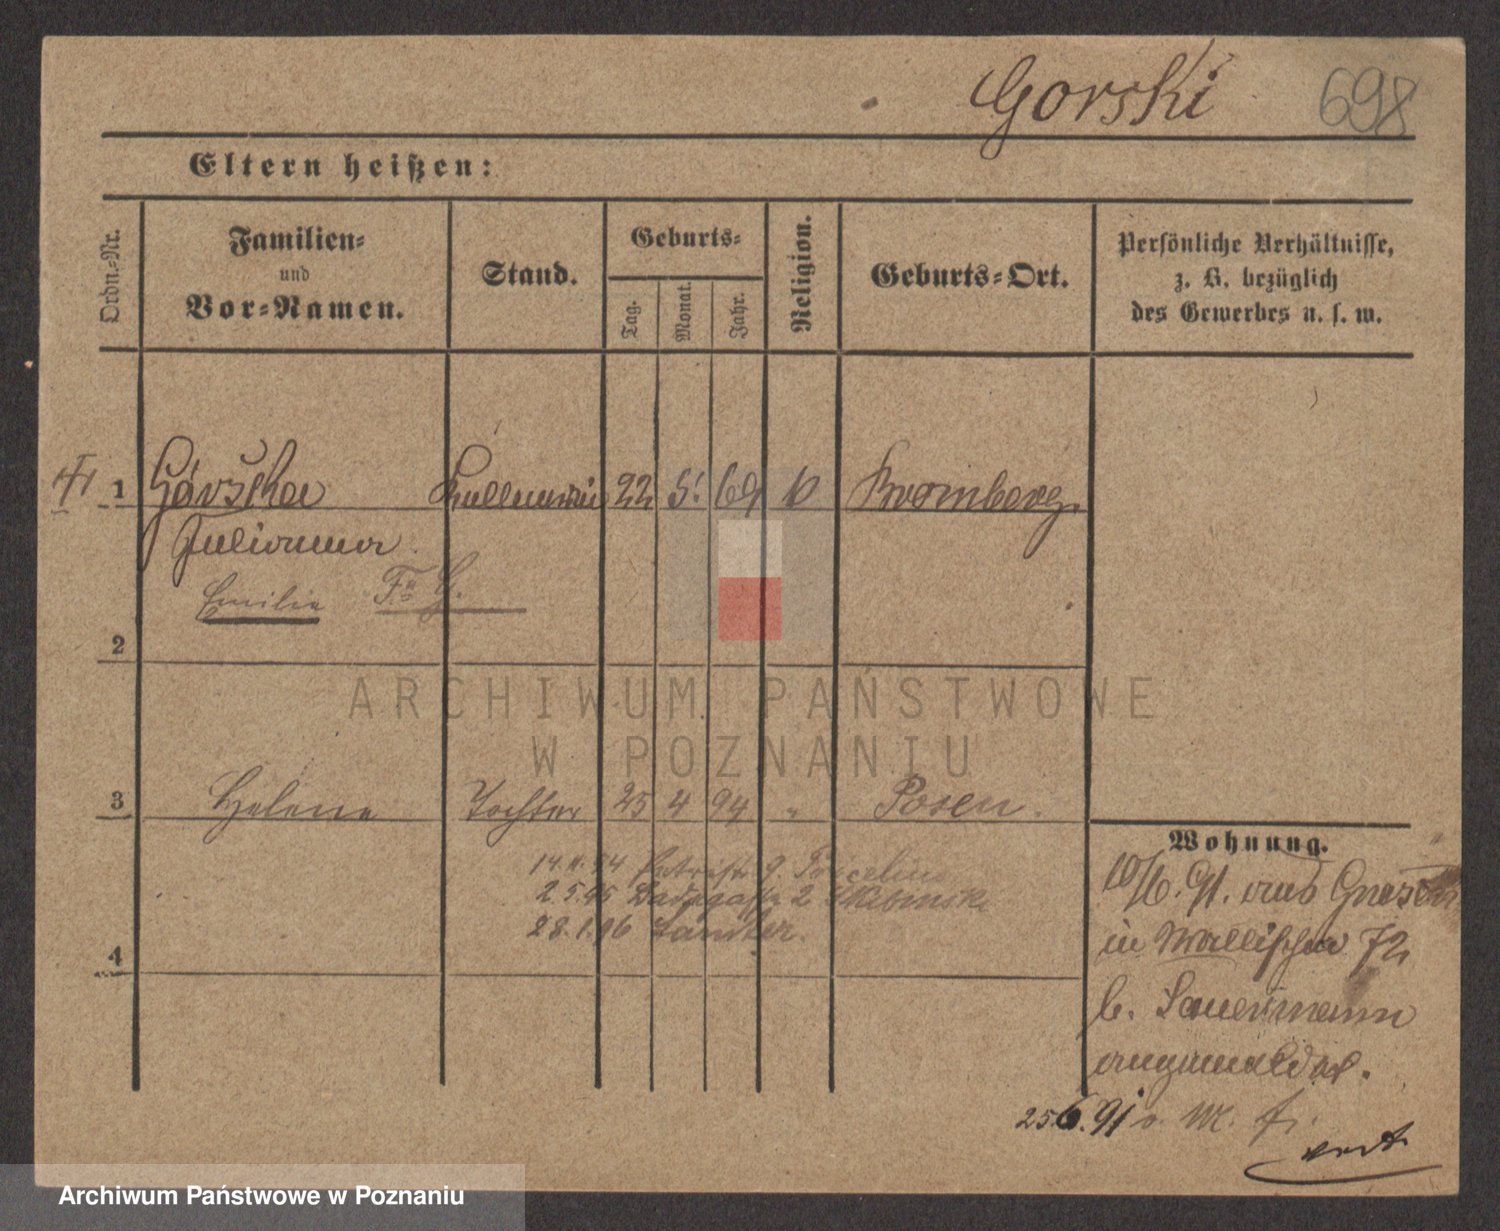 Gorski 698
Eltern heißen:
Ordn.-Nr.
Familien-
und
Vor-Namen.
Stand.
Geburts-
Tag.
Monat.
Jahr.
Religion.
Geburts-Ort.
Persönliche Verhältnisse,
z. B. bezüglich
des Gewerbes u. s. w.
1 Górska Kellnerin 22 5. 69 k Bromberg.
Julianna
Emilie
2
ARCHIWUM PAŃSTWOWE
W POZNANIU
3 Helene Tochter 25 4 94 " Posen.
Wohnung.
14.11.94
2 5.95 2
28.1.96
4
10/6. 91. aus Gnesen
in Wallischei 72
b. Sauermann
angemeldet.
25.6.91
Archiwum Państwowe w Poznaniu